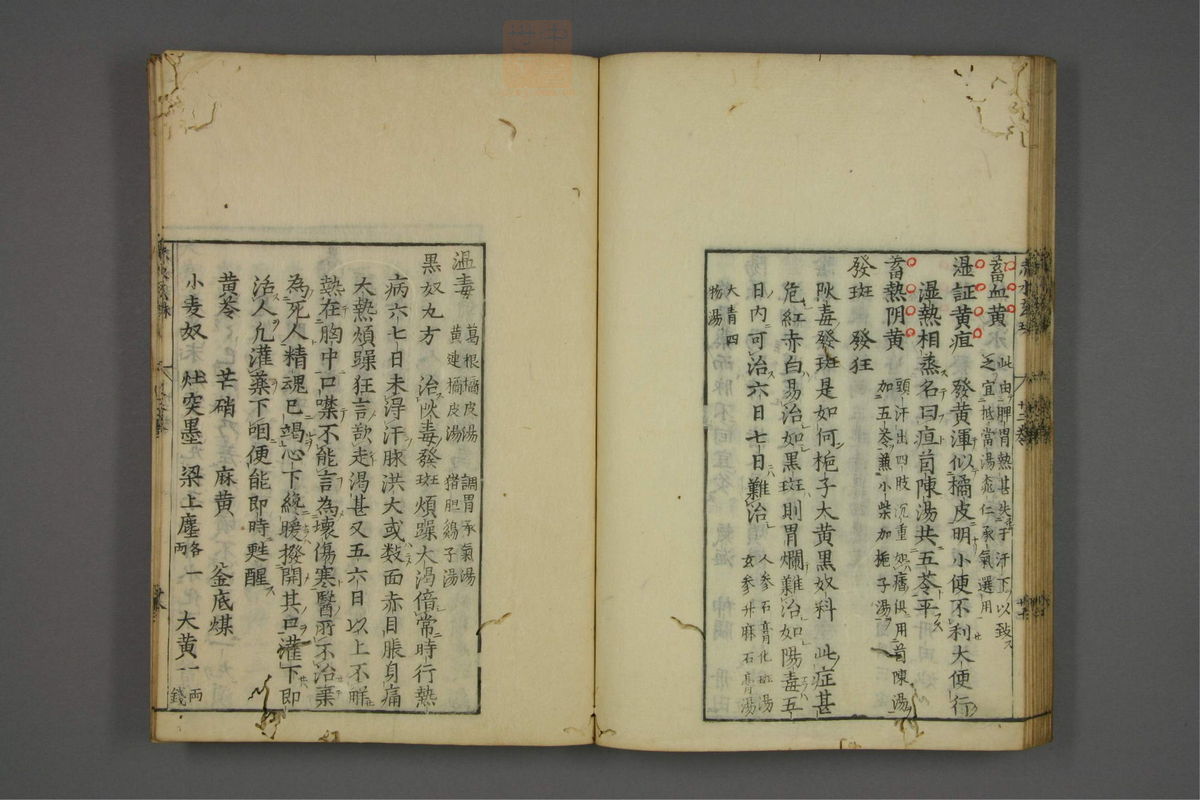 畜血黄 此由脾胃熱甚失于汗下以致
之宜抵當湯桃仁承氣選用
湿証黄疸 發黄渾似橘皮明小便不利大便行
湿熱相蒸名曰疸茵陳湯共五苓平
畜熱阴黄 頭汗出四肢沉重
加五苓兼小柴加栀子湯
發班 發狂
阦毒發班是如何栀子大黄黒奴料 此症甚
危紅赤白易治如黒班則胃爛難治如陽毒五
日内可治六日七日難治 人参石膏化班湯
玄参升麻石膏湯
大青四
物湯
温毒 葛根橘皮湯 調胃承氣湯
黄連橘皮湯 猪胆鷄子湯
黒奴丸方 治阦毒發班煩躁大渇倍常時行熱
病六七日未淂汗脉洪大或数面赤目脹身痛
大熱煩躁狂言欲走渇甚又五六日以上不觧
熱在胸中口噤不能言為壞傷寒醫所不治棄
為死人精魂已竭心下緫暖撥開其口灌下即
治人凢灌藥下咽便能即時甦醒
黄芩 芒硝 麻黄 釡底煤
小麦奴 灶突墨 梁上塵 各一
両 大黄 一両
一錢